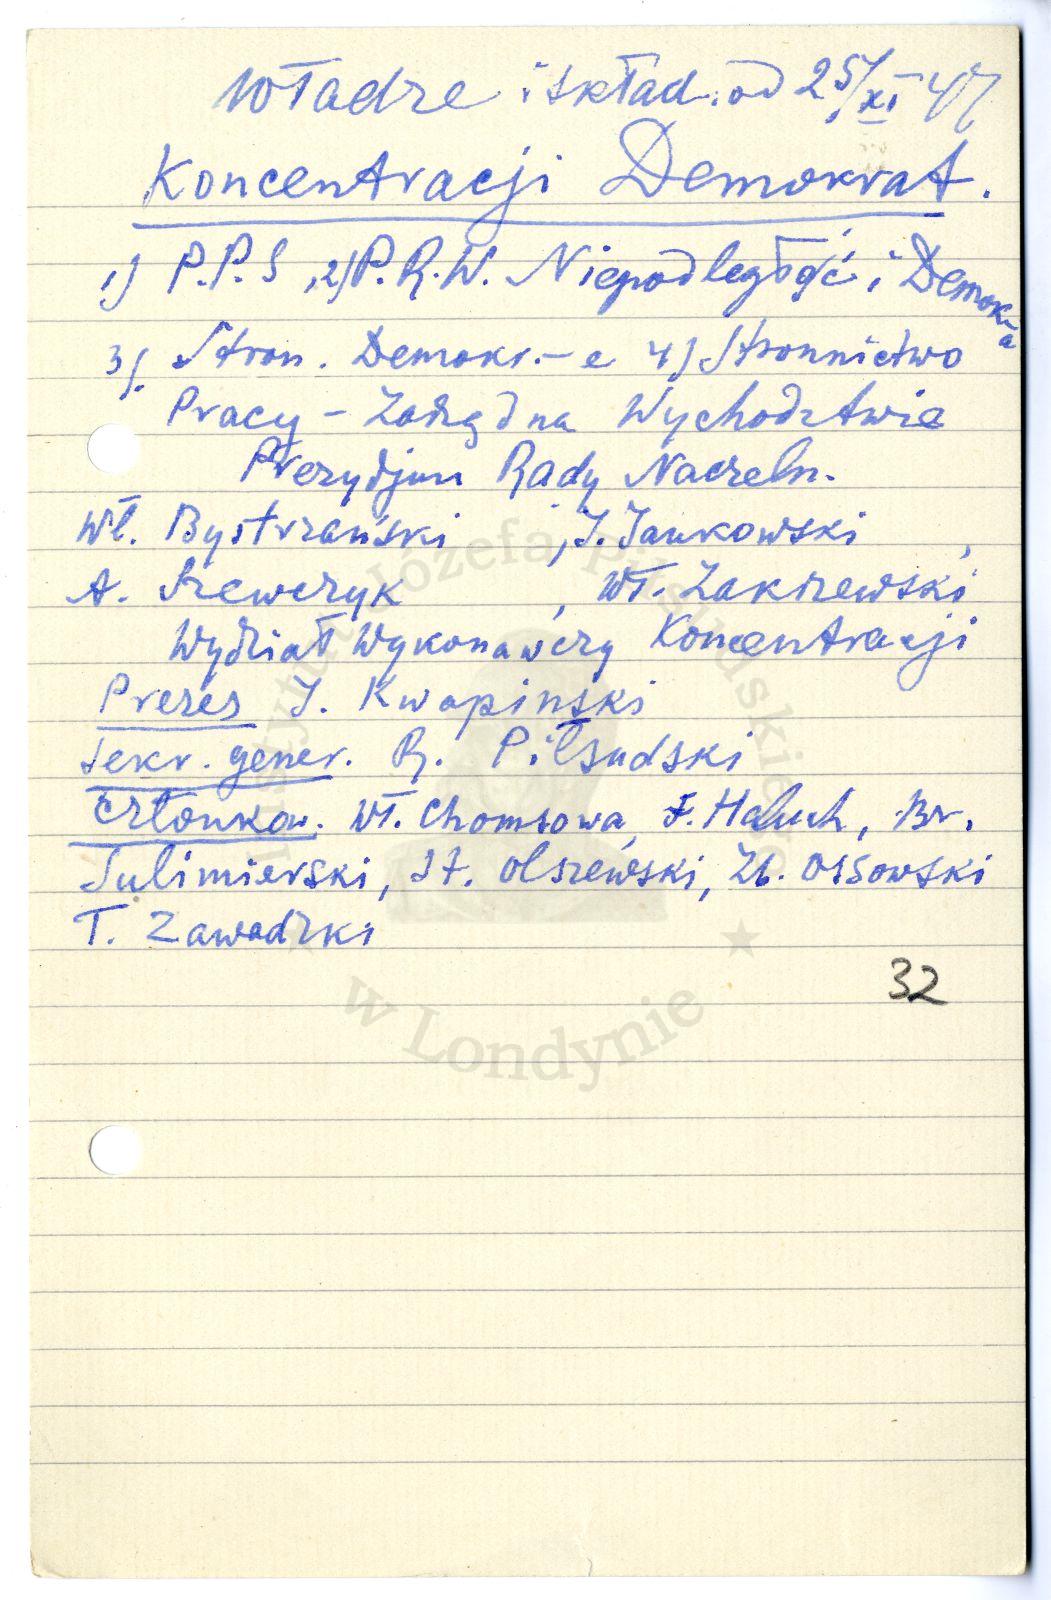 Władze i skład. od 25/XI 47
Koncentracji Demokrat.
1) P.P.S ,2) P.R.W. Niepodległość i Demokr-a
3). Stron. Demokr.-e 4) Stronnictwo
Pracy - Zarząd na Wychodztwie
Prezydjum Rady Naczeln.
Wł. Bystrzański , J. Jankowski ,
A. Szewczyk , Wł. Zakrzewski,
Wydział Wykonawczy Koncentracji
Prezes J. Kwapinski
Sekr. gener. R. Piłsudski
Członkow. Wł. Chomsowa, F. Haluch, Br.
Sulimierski, St. Olszewski, Zb. Ossowski
T. Zawadzki
32
Instytut Józefa Piłsudskiego
w Londynie